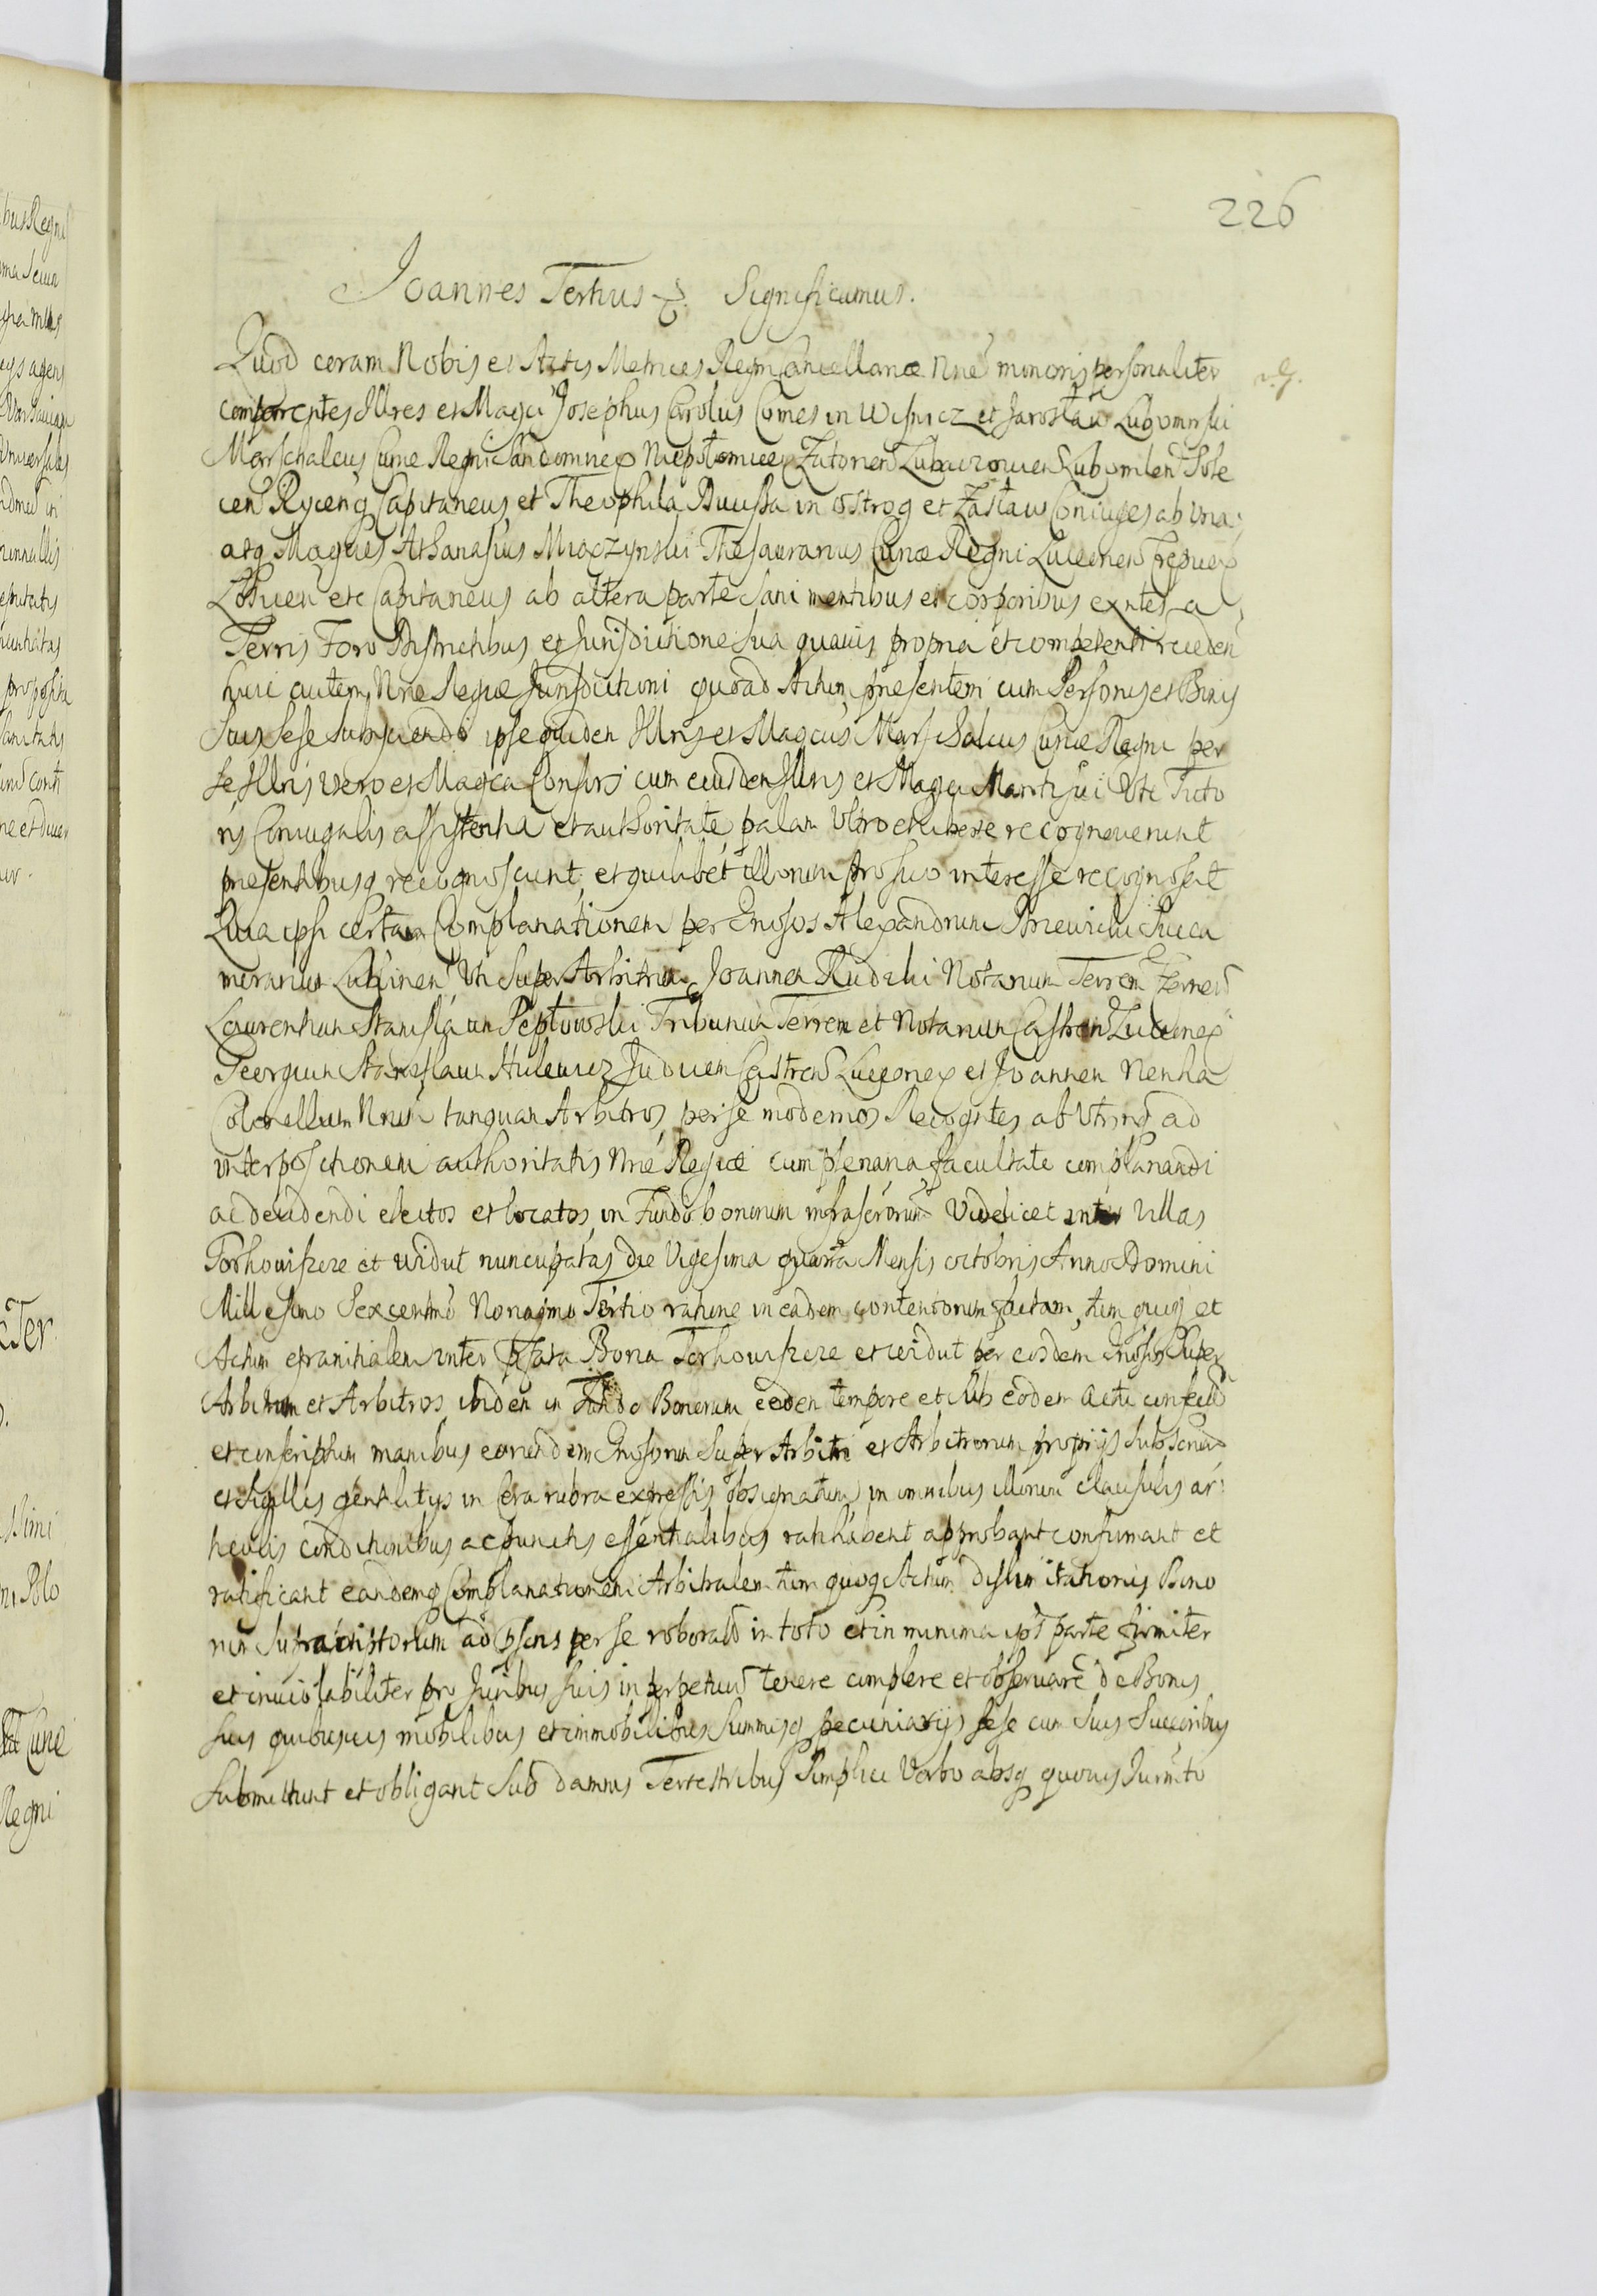 226
Joannes Tertius etc. Significamus.
Quod coram Nobis et Actis Metrices Regni Cancellariæ Nræ minoris personaliter
comparentes Illres et Magci Josephus Carolus Comes in Wisnicz et Jarosław Lubomirski
Marschalcus Curiæ Regni Sandomirien Niepołomicen Zatorien Lubaczowien Lubomlen Sole
cen Ryceng Capitaneus et Theophila Ducissa in Ostrog et Zasław Coniuges ab Una
atq Magcus Athanasius Miaczynski Thesaurarius Curiæ Regni Luceorien Crepicen
Łosicen etc Capitaneus ab altera parte Sani mentibus et corporibus exntes a
Terris Foro Districtibus et Jurisdictione sua quavis propria et competenti receden
huic autem Nræ Regiæ Jurisdictioni quoad Actum præsentem cum Personis et Bonis
Suis sese subijciendo ipse quidem Illris et Magcus Marschalcus Curiæ Regni per
se Illris vero et Magca Consors cum eiusdem Illris et Magci Mariti sui Uti Tuto
ris Coniugalis assistentia et authoritate palam Ultro et libere recognoverunt
præsentibusq recognoscunt, et quilibet illorum pro suo interesse recognoscit
Quia ipsi certam Complanationem per Gnosos Alexandrum Succa
merarium Lublinen Uti Super Arbitrum Joannem Rudzki Notarium Terren
Laurentium Stanislaum Pepłowski Tribunum Terren et Notarium Castren Luceorien
Georgium Stanislaum Hulewicz Judicem Castren Luceorien et Joannem Nenha
Colonellum Nrum tanquam Arbitros per se modernos Recogntes ab Utrinq ad
interpositionem authoritatis Nræ Regiæ cum plenaria facultate complanandi
ac decidendi electos et locatos in Fundo bonorum infrascrorum Videlicet inter Villas
Torhowiscze et Widut nuncupatas die Vigesima quarta Mensis octobris Anno Domini
Millesimo Sexcentmo Nonagmo Tertio ratione in eadem contentorum factam, tum quoq et
Actum granitialem inter pfata Bona Torhowiscze et widut per eosdem Gnosos Super
Arbitrum et Arbitros ibidem in Fundo Bonorum eodem tempore et sub eodem actu confectu
et conscriptum manibus eorundem Gnosorum Super Arbitri et Arbitrorum proprijs subscript
et Sigillis gentilitijs in Cera rubra expressis obsignatum in omnibus illorum clausulis ar
ticulis conditionibus ac punctis essentialibus ratihabent approbant confirmant et
ratificant eandemq Complanationem Arbitralem tum quoq Actum dislimitationis Bono
rum Suprascriptorum ad psens per se roborata in toto et in minima ipsor parte firmiter
et inviolabiliter pro Juribus suis in perpetuum tenere complere et observare de Bonis
suis quibusvis mobilibus et immobilibus summisq pecuniarijs sese cum suis Succoribus
Submittunt et obligant Sub damnis Terrestribus Simplici Verbo absq quovis Juramto